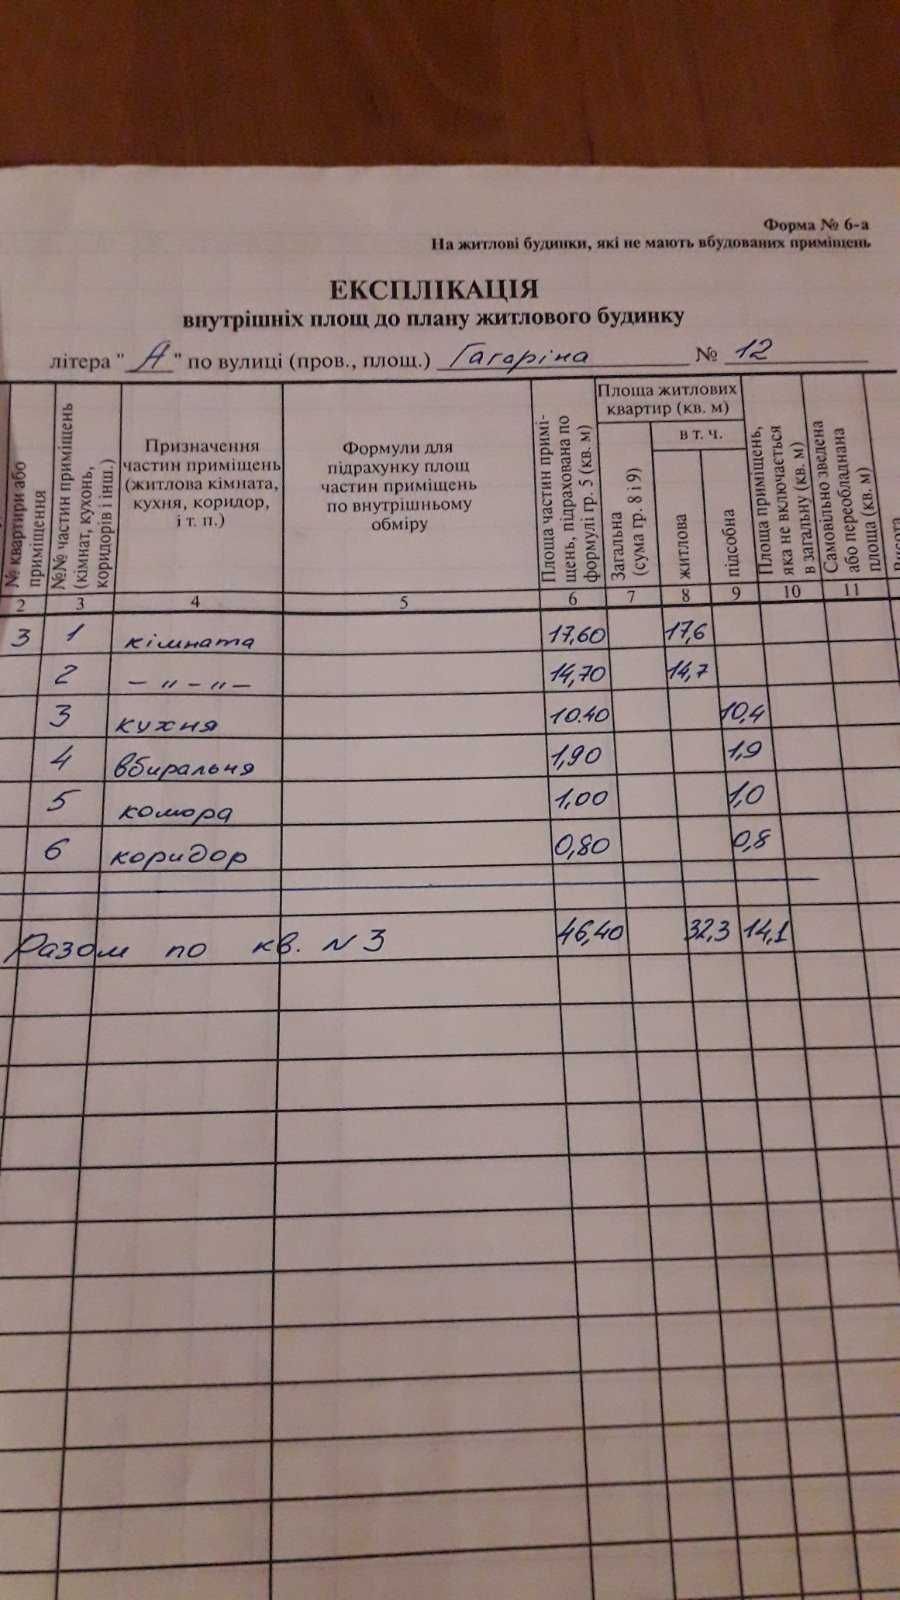 Форма № 6-а
На житлові будинки, які не мають вбудованих приміщень
ЕКСПЛІКАЦІЯ
внутрішніх площ до плану житлового будинку
літера " А " по вулиці (пров., площ.) Гагаріна № 12
№ квартири або
приміщення
№№ частин приміщень
(кімнат, кухонь,
коридорів і інш.)
Призначення
частин приміщень
(житлова кімната,
кухня, коридор,
і т. п.)
Формули для
підрахунку площ
частин приміщень
по внутрішньому
обміру
Площа частин примі-
щень, підрахована по
формулі гр. 5 (кв. м)
Площа житлових
квартир (кв. м)
Загальна
(сума гр. 8 і 9)
в т. ч.
житлова
підсобна
Площа приміщень,
яка не включається
в загальну (кв. м)
Самовільно зведена
або переобладнана
площа (кв. м)
2 3 4 5 6 7 8 9 10 11
3 1 кімната 17,60 17,6
2 – " – " – 14,70 14,7
3 кухня 10.40 10,4
4 вбиральня 1,90 1,9
5 комора 1,00 1,0
6 коридор 0,80 0,8
Разом по кв. N 3 46,40 32,3 14,1